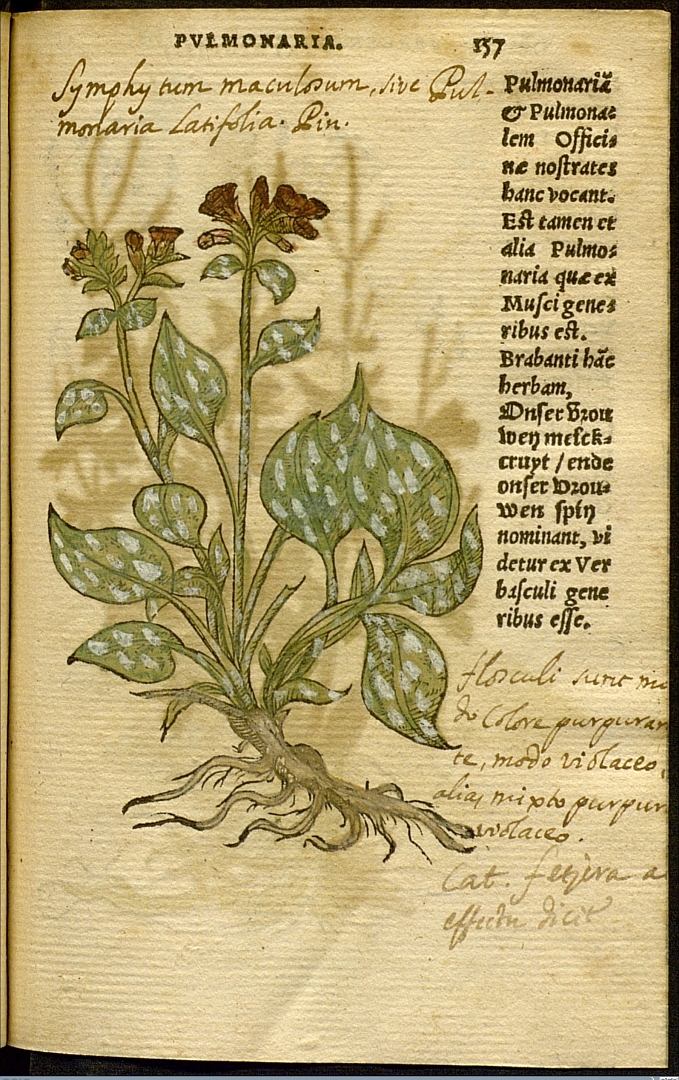 PVLMONARIA. 157
Symphytum maculosum, sive Pul-
monaria Latifolia. Pin.
Pulmonariā
& Pulmona=
lem Offici=
næ nostrates
hanc vocant.
Est tamen et
alia Pulmo=
naria quæ ex
Musci gene=
ribus est.
Brabanti hāc
herbam,
Onser Vrou
wen melck=
cruyt / ende
onser Vrou=
wen spin
nominant, vi
detur ex Ver
basculi gene
ribus esse.
flosculi sunt mo
do Colore purpuran
te, modo violaceo,
alias mixto purpur
violaceo.
Cat. a
effectu dicit